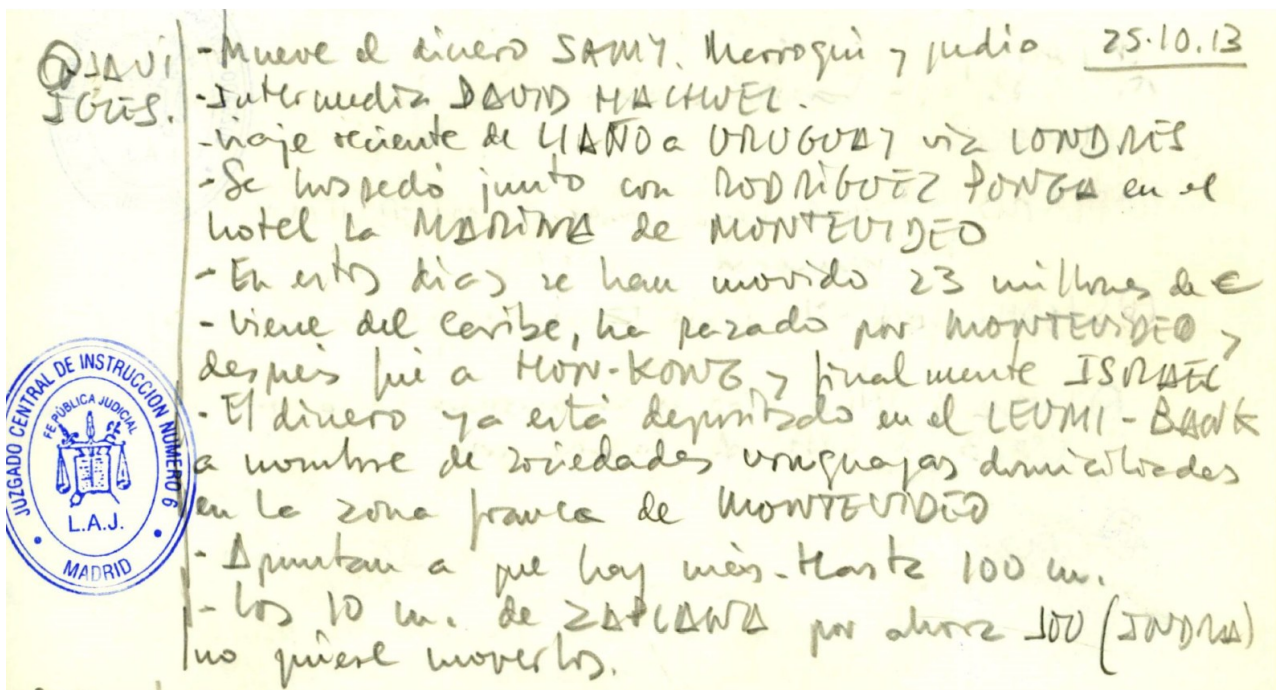 25.10.13
JAVI IGLES.
- Mueve el dinero SAMY. Marroqui y judio
- Intermedia DAVID MACHUEL.
- Viaje reciente de LIAÑO a URUGUAY via LONDRES
- Se hospedó junto con RODRÍGUEZ PONGA en el
hotel La MARINA de MONTEVIDEO
- En estos dias se han movido 23 millones de €
- Viene del Caribe, ha pasado por MONTEVIDEO,
despues fué a HON-KONG, y finalmente ISRAEL
- El dinero ya está depositado en el LEUMI-BANK
a nombre de sociedades uruguayas domiciliadas
en la zona franca de MONTEVIDEO
- Apuntan a que hay más. Hasta 100 m.
- Los 10 m. de ZAPLANA por ahora (INDRA)
no quiere moverlos.
JUZGADO CENTRAL DE INSTRUCCION NUMERO 6
FE PÚBLICA JUDICIAL
L.A.J.
MADRID